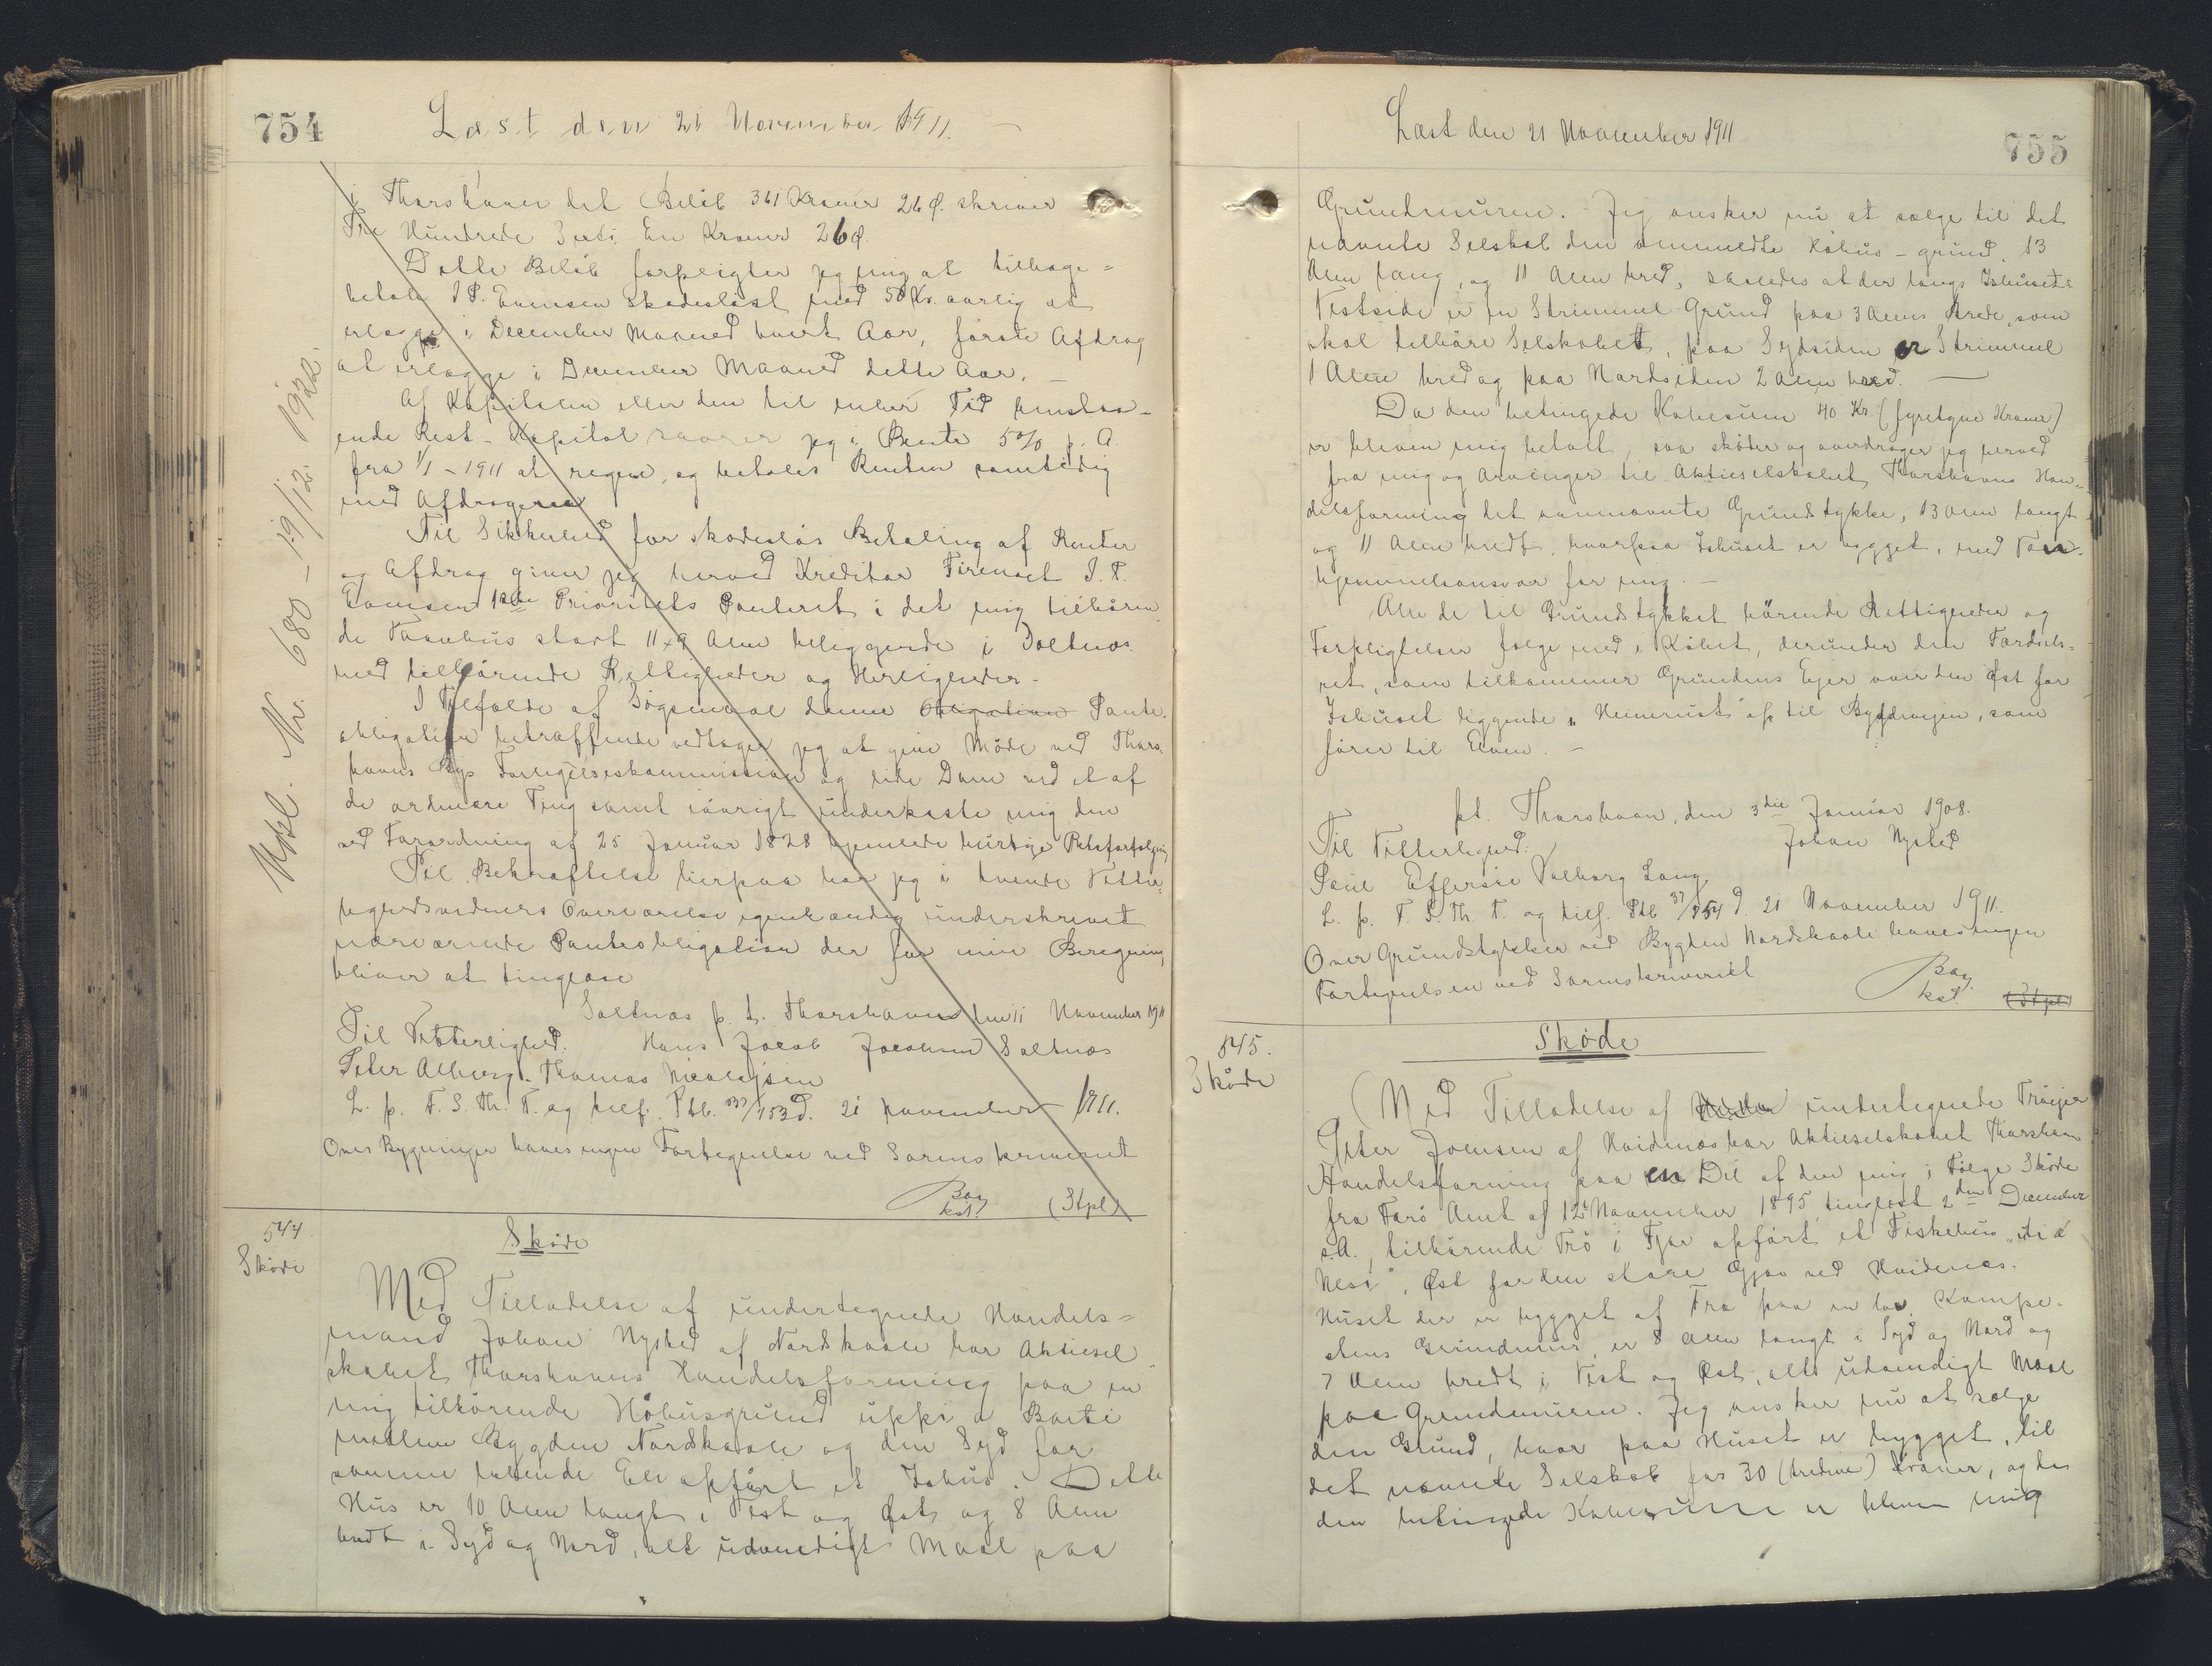 754
Læst den 21 November 1911.
i Thorshavn det Beløb 361 Kroner 26 Ø. skriver
Tre Hundrede Sexti En Kroner 26 Ø.
Dette Beløb forpligter jeg mig at tilbage=
betale I. P. Evensen skadesløst med 50 Kr. aarlig at
erlægge i December Maaned hvert Aar, første Afdrag
at erlægge i December Maaned dette Aar. —
Af Kapitalen eller den til enhver Tid henstaa-
ende Rest-Kapital svarer jeg i Rente 5 % p. A.
fra 1/1 - 1911 at regne, og betales Renten samtidig
med Afdragene
Til Sikkerhed for skadesløs Betaling af Renter
og Afdrag giver jeg herved Kreditor Firmaet I. P.
Evensen 1ste Prioritets Panteret i det mig tilhøren
de Vaanhus stort 11 x 9 Alen beliggende i Saltnæs
med tilhørende Rettigheder og Herligheder.
I Tilfælde af Søgsmaal denne Obligation Pante-
obligation betræffende vedtager jeg at give Møde ved Thors-
havns Bys Forligelseskommission og lide Dom ved et af
de ordinære Ting samt iøvrigt underkaste mig den
ved Forordning af 25 Januar 1828 hjemlede hurtige Retsforfølgning
Til Bekræftelse herpaa har jeg i tvende Vitter-
lighedsvidners Overværelse egenhændig underskrevet
nærværende Panteobligation der for min Beregning
bliver at tinglæse
Saltnæs p. t. Thorshavn den 11 November 1911
Til Vitterlighed. Hans Jacob Jacobsen Saltnæs
Peter Alberg. Thomas Nicolajsen
L. p. F. S. Th. T. og tilf. Ptb. 37/753 d. 21 November 1911.
Over Bygninger haves ingen Fortegnelse ved Sorenskriveriet
Bay
kst. (Stpl)
Afsl. Nr. 680 - 19/12. 1922.
544
Skøde
Skøde
Med Tilladelse af undertegnede Handels=
mand Johan Nysted af Nordskaale har Aktiesel
skabet Thorshavns Handelsforening paa en
mig tilhørende Høhusgrund uppi a Barti
mellem Bygden Nordskaale og den Syd for
samme løbende Elv opført et Ishus. Dette
Hus er 10 Alen langt i Vest og Øst og 8 Alen
bredt i Syd og Nord, alt udvendigt Maal paa
Læst den 21 November 1911
755
Grundmuren. Jeg ønsker nu at sælge til det
nævnte Selskab den ommeldte Høhus-grund, 13
Alen lang, og 11 Alen bred, saaledes at der langs Ishusets
Vestside er en Strimmel Grund paa 3 Alens Brede, som
skal tilhøre Selskabet, paa Sydsiden er Strimmel
1 Alen bred og paa Nordsiden 2 Alen bred. —
Da den betingede Købesum 40 Kr. (fyretyve Kroner)
er bleven mig betalt, saa skøder og overdrager jeg herved
fra mig og Arvinger til Aktieselskabet Thorshavns Han-
delsforening det ovennævnte Grundstykke, 13 Alen langt
og 11 Alen bredt, hvorpaa Ishuset er bygget, med Van-
hjemmelsansvar for mig. —
Alle de til Grundstykket hørende Rettigheder og
Forpligtelser følge med i Købet, derunder den Færdsels-
ret, som tilkommer Grundens Ejer over den Øst for
Ishuset liggende „Heimrust" op til Bygdevejen, som
fører til Elven. —
pt. Thorshavn, den 3die Januar 1908.
Til Vitterlighed: Johan Nysted
Poul Effersøe Valborg Lang
L. p. F. S. Th. T. og tilf. Ptb 37/754 d. 21 November 1911.
Over Grundstykker ved Bygden Nordskaale haves ingen
Fortegnelsen ved Sorenskriveriet
Bay
kst. (Stpl)
545.
Skøde
Skøde
Med Tilladelse af undertegnede Trøejer
Peter Joensen af Hvidenæs har Aktieselskabet Thorshavns
Handelsforening paa en Del af den mig i Følge Skøde
fra Færø Amt af 12te November 1895, tinglæst 2den December
s. A., tilhørende Trø i Eje opført et Fiskehus „uti á
Nesi", Øst for den store Gjov ved Hvidenæs.
Huset der er bygget af Træ paa en lav Kampe-
stens Grundmur, er 8 Alen langt i Syd og Nord og
7 Alen bredt i Vest og Øst, alt udvendigt Maal
paa Grundmuren. Jeg ønsker nu at sælge
den Grund, hvor paa Huset er bygget, til
det nævnte Selskab for 30 (tredive) Kroner, og da
den betingede Købesum er bleven mig